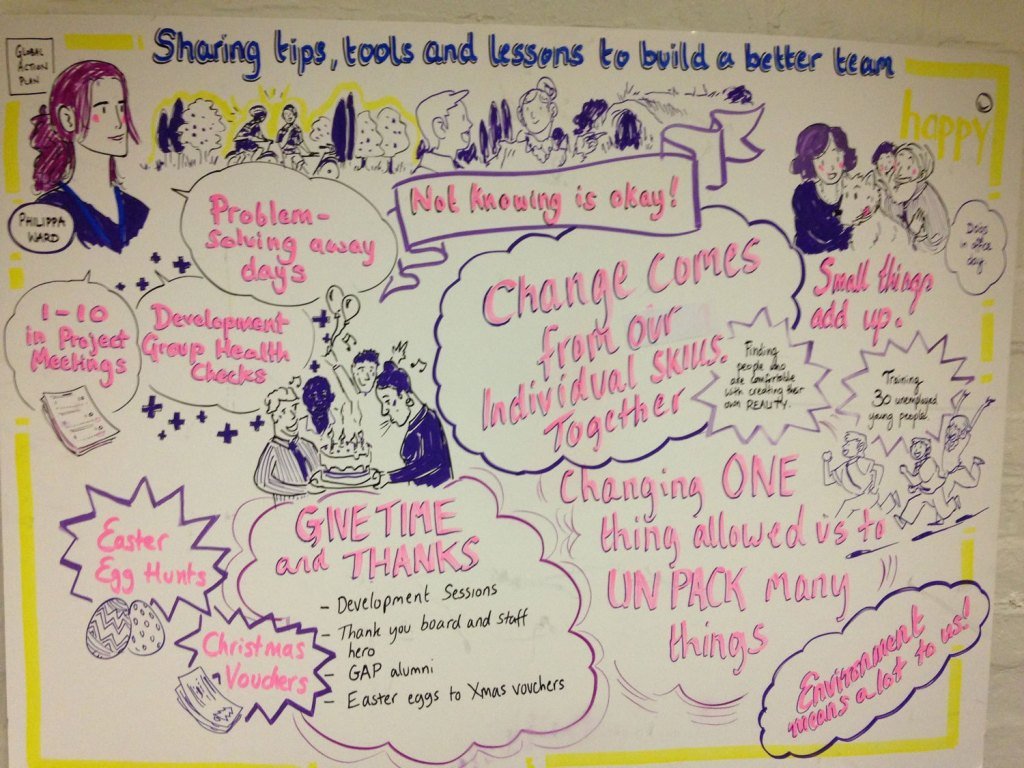 Sharing tips, tools and lessons to build a better team
GLOBAL
ACTION
PLAN
happy
PHILIPPA
WARD
Not knowing is okay!
Problem-
Solving away
days
1-10
in Project
Meetings
Development
Group Health
Checks
Change Comes
from our
Individual SKILLS.
Together
Dogs
in office
day.
Small things
add up.
Finding
people who
are comfortable
with creating their
own REALITY.
Training
30 unemployed
young people
Changing ONE
thing allowed us to
UNPACK Many
things
Easter
Egg Hunts
Christmas
Vouchers
GIVE TIME
and THANKS
- Development Sessions
- Thank you board and staff
hero
- GAP alumni
- Easter eggs to Xmas vouchers
Environment
means a lot to us!